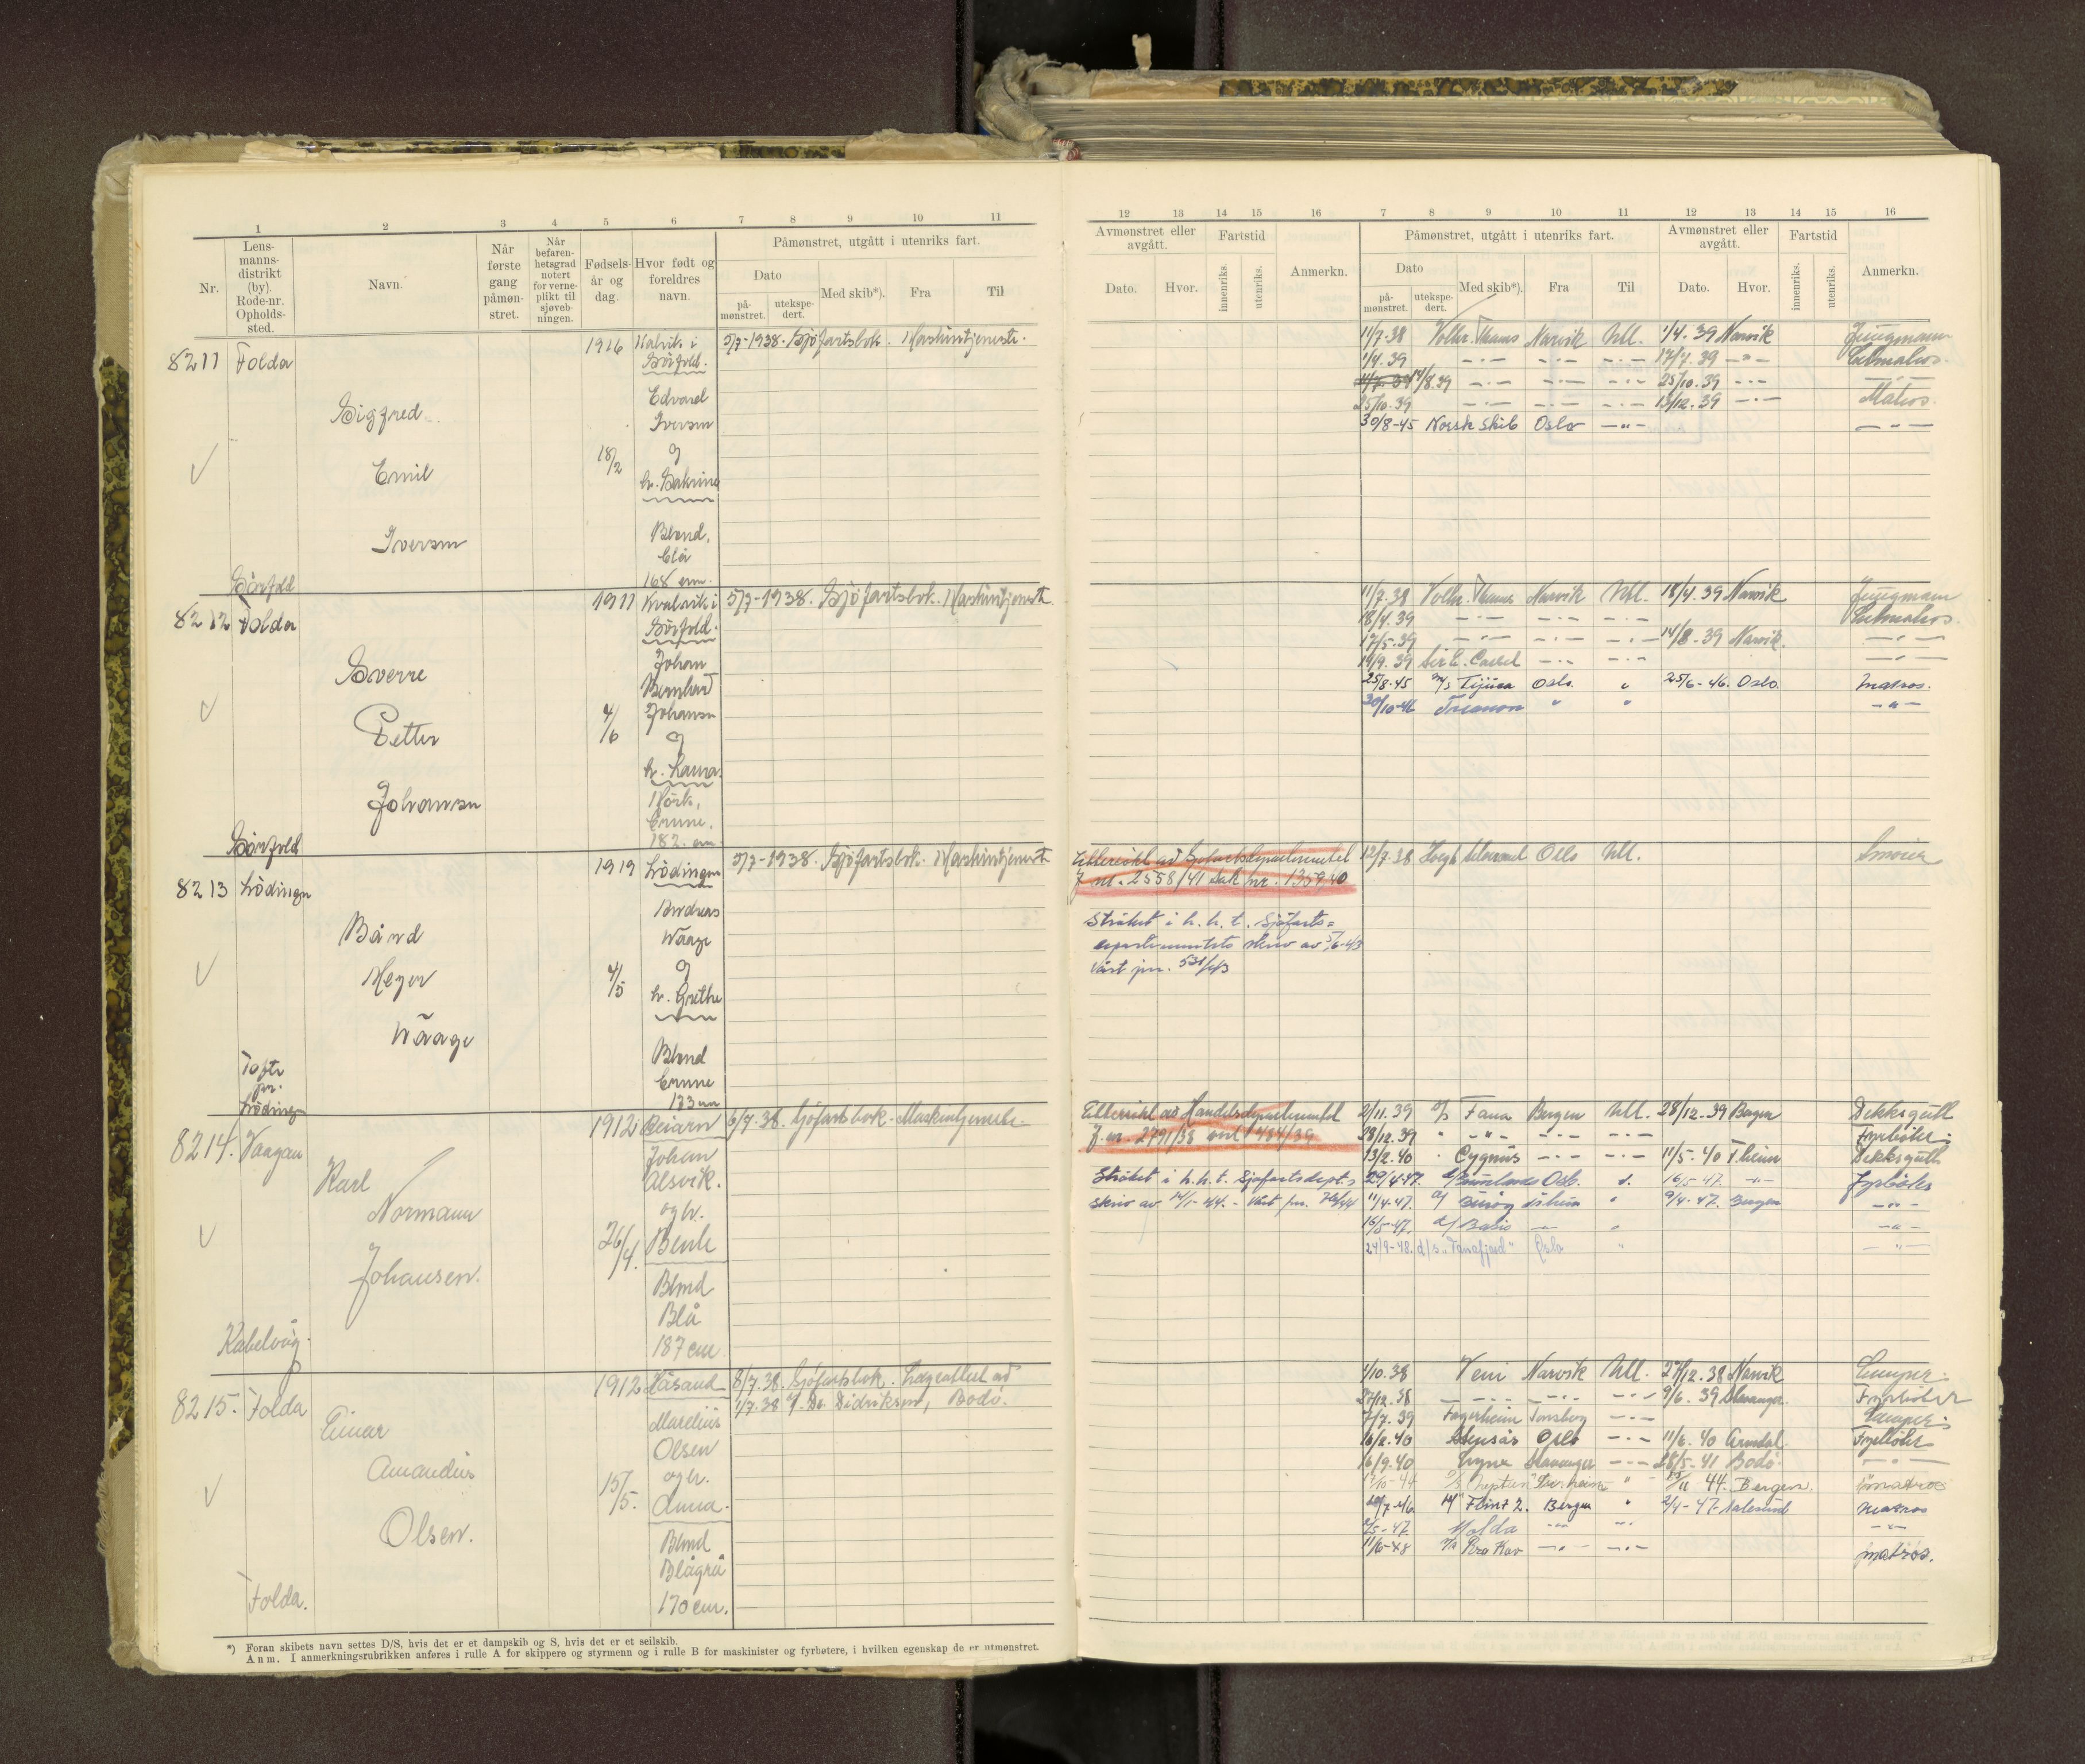 1 2 3 4 5 6 7 8 9 10 11
Nr.
Lens-
manns-
distrikt
(by).
Rode-nr.
Opholds-
sted.
Navn.
Når
første
gang
påmøn-
stret.
Når
befaren-
hetsgrad
notert
for verne-
plikt til
sjøveb-
ningen.
Fødsels-
år og
dag.
Hvor født og
foreldres
navn.
Påmønstret, utgått i utenriks fart.
Dato
på-
mønstret.
utekspe-
dert.
Med skib*).
Fra
Til
8211 Folda
Sigfred
Emil
Iversen
Sörfold
1916
18/2
Kalvik i
Sörfold.
Edvard
Iversen
og
h. Sakrine
Blond,
blå
168 cm.
5/7-1938. Sjöfartsbok. Maskintjeneste.
8212 Folda
Sverre
Petter
Johansen
Sörfold
1911
4/6
Kvalvik i
Sörfold.
Johan
Bernhard
Johansen
og
h. Laura.
Mörk,
brune.
182 cm
5/7-1938. Sjöfartsbok. Maskintjeneste
8213 Lödingen
Bård
Meyer
Waage
Tofte
pr.
Lödingen
1919
4/5
Lödingen
Andreas
Waage
og
h. Grethe
Blond
brune
173 cm
5/7-1938. Sjöfartsbok. Maskintjeneste
8214. Vaagan
Karl
Normann
Johansen.
Kabelvåg.
1912
26/4.
Beiarn
Johan
Alsvik.
og h.
Berit
Blond
Blå
187 cm
6/7.38. Sjöfartsbok. Maskintjeneste.
8215. Folda
Einar
Amandus
Olsen.
Folda.
1912
15/5.
Marelius
Olsen
og h.
Anna.
Blond
Blågrå
170 cm.
8/7.38. Sjöfartsbok. Lægeattest av
1/7.38 f. Dr. Didriksen, Bodö.
*) Foran skibets navn settes D/S, hvis det er et dampskib og S, hvis det er et seilskib.
Anm. I anmerkningsrubrikken anføres i rulle A for skippere og styrmenn og i rulle B for maskinister og fyrbøtere, i hvilken egenskap de er utmønstret.
12 13 14 15 16 7 8 9 10 11 12 13 14 15 16
Avmønstret eller
avgått.
Dato.
Hvor.
Fartstid
innenriks.
utenriks.
Anmerkn.
Påmønstret, utgått i utenriks fart.
Dato
på-
mønstret.
utekspe-
dert.
Med skib*).
Fra
Til
Avmønstret eller
avgått.
Dato.
Hvor.
Fartstid
innenriks.
utenriks.
Anmerkn.
11/7.38 Thams Narvik Utl. 1/4.39 Narvik Jungmann
1/4.39 -·- -·- -·- 17/7.39 -"- Letmatros
14/8.39 -·- -·- -·- 25/10.39 -·- -·-
25/10.39 -·- -·- -·- 13/12.39 -·- Matros
30/8-45 Norsk Skib Oslo -"- -"-
11/7.38 Thams Narvik Utl. 18/4.39 Narvik Jungmann
18/4.39 -·- -·- -·- Letmatros.
17/5.39 -·- -·- -·- 14/8.39 Narvik. -·-
19/9.39 Sir E. Cassel -·- -·- -·-
25/8-45 m/s Tijuca Oslo. " 25/6-46. Oslo. matros.
30/10-46 Treanon " " -"-
Etterøkt av Sjöfartsdepartementet
J nr. 2558/41 sak nr. 1359/40
12/7.38 Oslo Utl. Smører
Strøket i h.h.t. Sjøfarts=
departementets skriv av 5/6-43
Vårt jnr. 531/43
Ettersøkt av Handelsdepartementet
J. nr. 2791/38 484/39
2/11.39 d/s Fana Bergen Utl. 28/12.39 Bergen Dekksgutt
28/12.39 " -"- -·- -·- Fyrbøter.
13/2.40 " Cygnus -·- -·- 11/5-40 T.heim Dekksgutt
Strøket i h.h.t. Sjøfartsdept.s
skriv av 14/1-44. - Vårt jnr. 76/44
29/4-47. Oslo. 16/5-47. -"- fyrbøter
11/4-47. 9/4-47. Bergen -"-
16/5-47. -"- -"-
24/8-48. d/s "Tanafjord" Oslo " -"-
1/10.38 Veni Narvik Utl. 27/12.38 Narvik Lemper.
27/12.38 -·- -·- -·- 9/6.39 Stavanger Fyrbøter
7/7.39 Fagerheim Tønsberg -·- Lemper.
16/2.40 Stensås Oslo -·- 11/6.40 Arendal Fyrbøter
16/9.40 Lyra Stavanger -·- 28/5-41 Bodö. -·-
17/10-44 d/s Neptun Tr.heim " 44. Bergen. matros
7-46 M/ Flint 2. Bergen " 2/4-47. Aalesund matros
2/5-47. Molda -"- -"- -"-
11/6-48 -·- -·- matros.